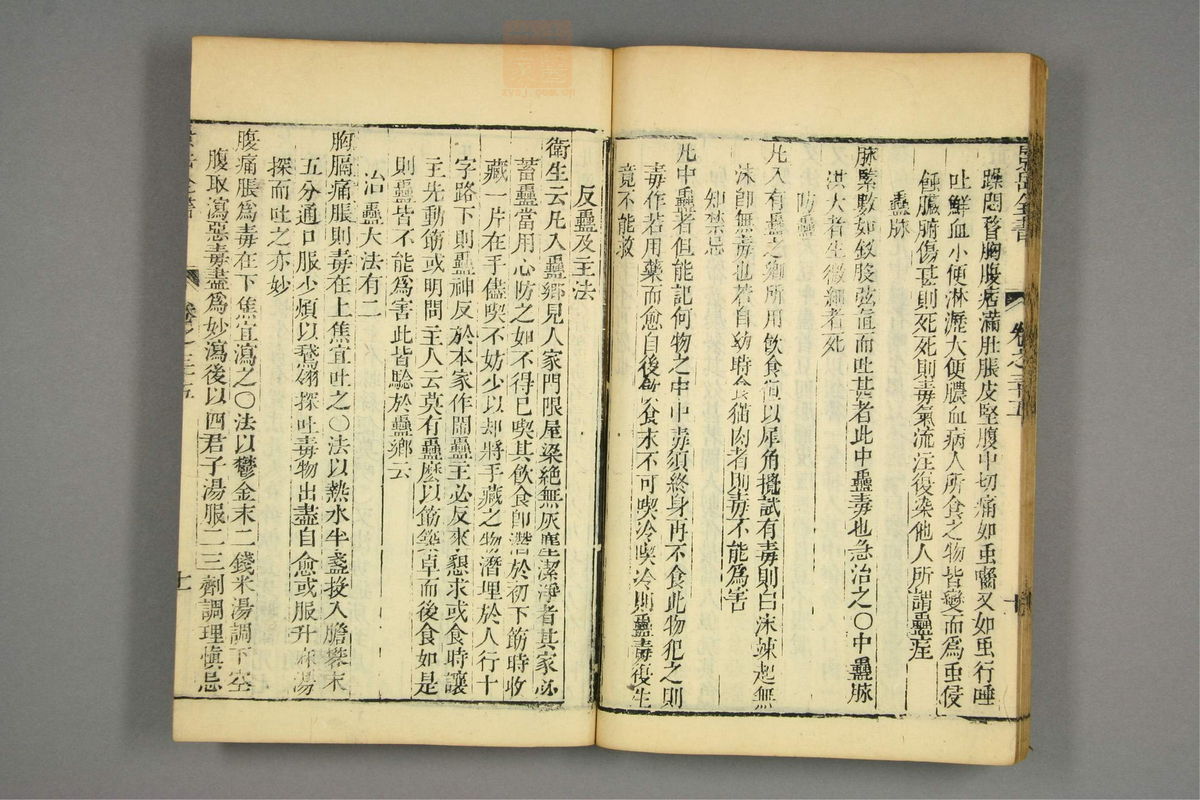 景岳全書 卷之三十五 十
躁悶瞀胸腹痞滿肚脹皮堅腹中切痛如虫嚙又如虫行唾
吐鮮血小便淋瀝大便膿血病人所食之物皆變而為虫侵
蝕臟腑傷甚則死死則毒氣流注復染他人所謂蠱疰
蠱脉
脉緊數如釵股弦直而吐甚者此中蠱毒也急治之○中蠱脉
洪大者生微細者死
防蠱
凡入有蠱之鄉所用飲食宜以犀角攪試有毒則白沫竦起無
沫即無毒也若自幼時食猫肉者則毒不能為害
知禁忌
凡中蠱者但能記何物之中中毒須終身再不食此物犯之則
毒作若用藥而愈自後飲食永不可喫冷喫冷則蠱毒復生
竟不能救
反蠱及主法
衛生云凡入蠱鄉見人家門限屋梁絕無灰塵潔淨者其家必
蓄蠱當用心防之如不得已喫其飲食即潛於初下筯時收
藏一片在手儘喫不妨少以却將手藏之物潛埋於人行十
字路下則蠱神反於本家作鬧蠱主必反來懇求或食時讓
主先動筯或明問主人云莫有蠱麽以筯築卓而後食如是
則蠱皆不能為害此皆驗於蠱鄉云
治蠱大法有二
胸膈痛脹則毒在上焦宜吐之○法以熱水半盞投入膽礬末
五分通口服少煩以鵞翎探吐毒物出盡自愈或服升麻湯
探而吐之亦妙
腹痛脹為毒在下焦宜瀉之○法以鬱金末二錢米湯調下空
腹取瀉惡毒盡為妙瀉後以四君子湯服二三劑調理慎忌
卷之三十五 十一
zysj.com.cn